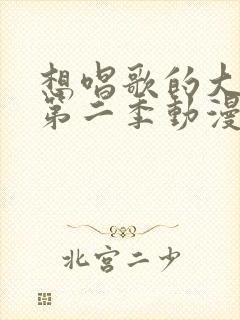 想唱歌的大
第二季動漫
北宮二少